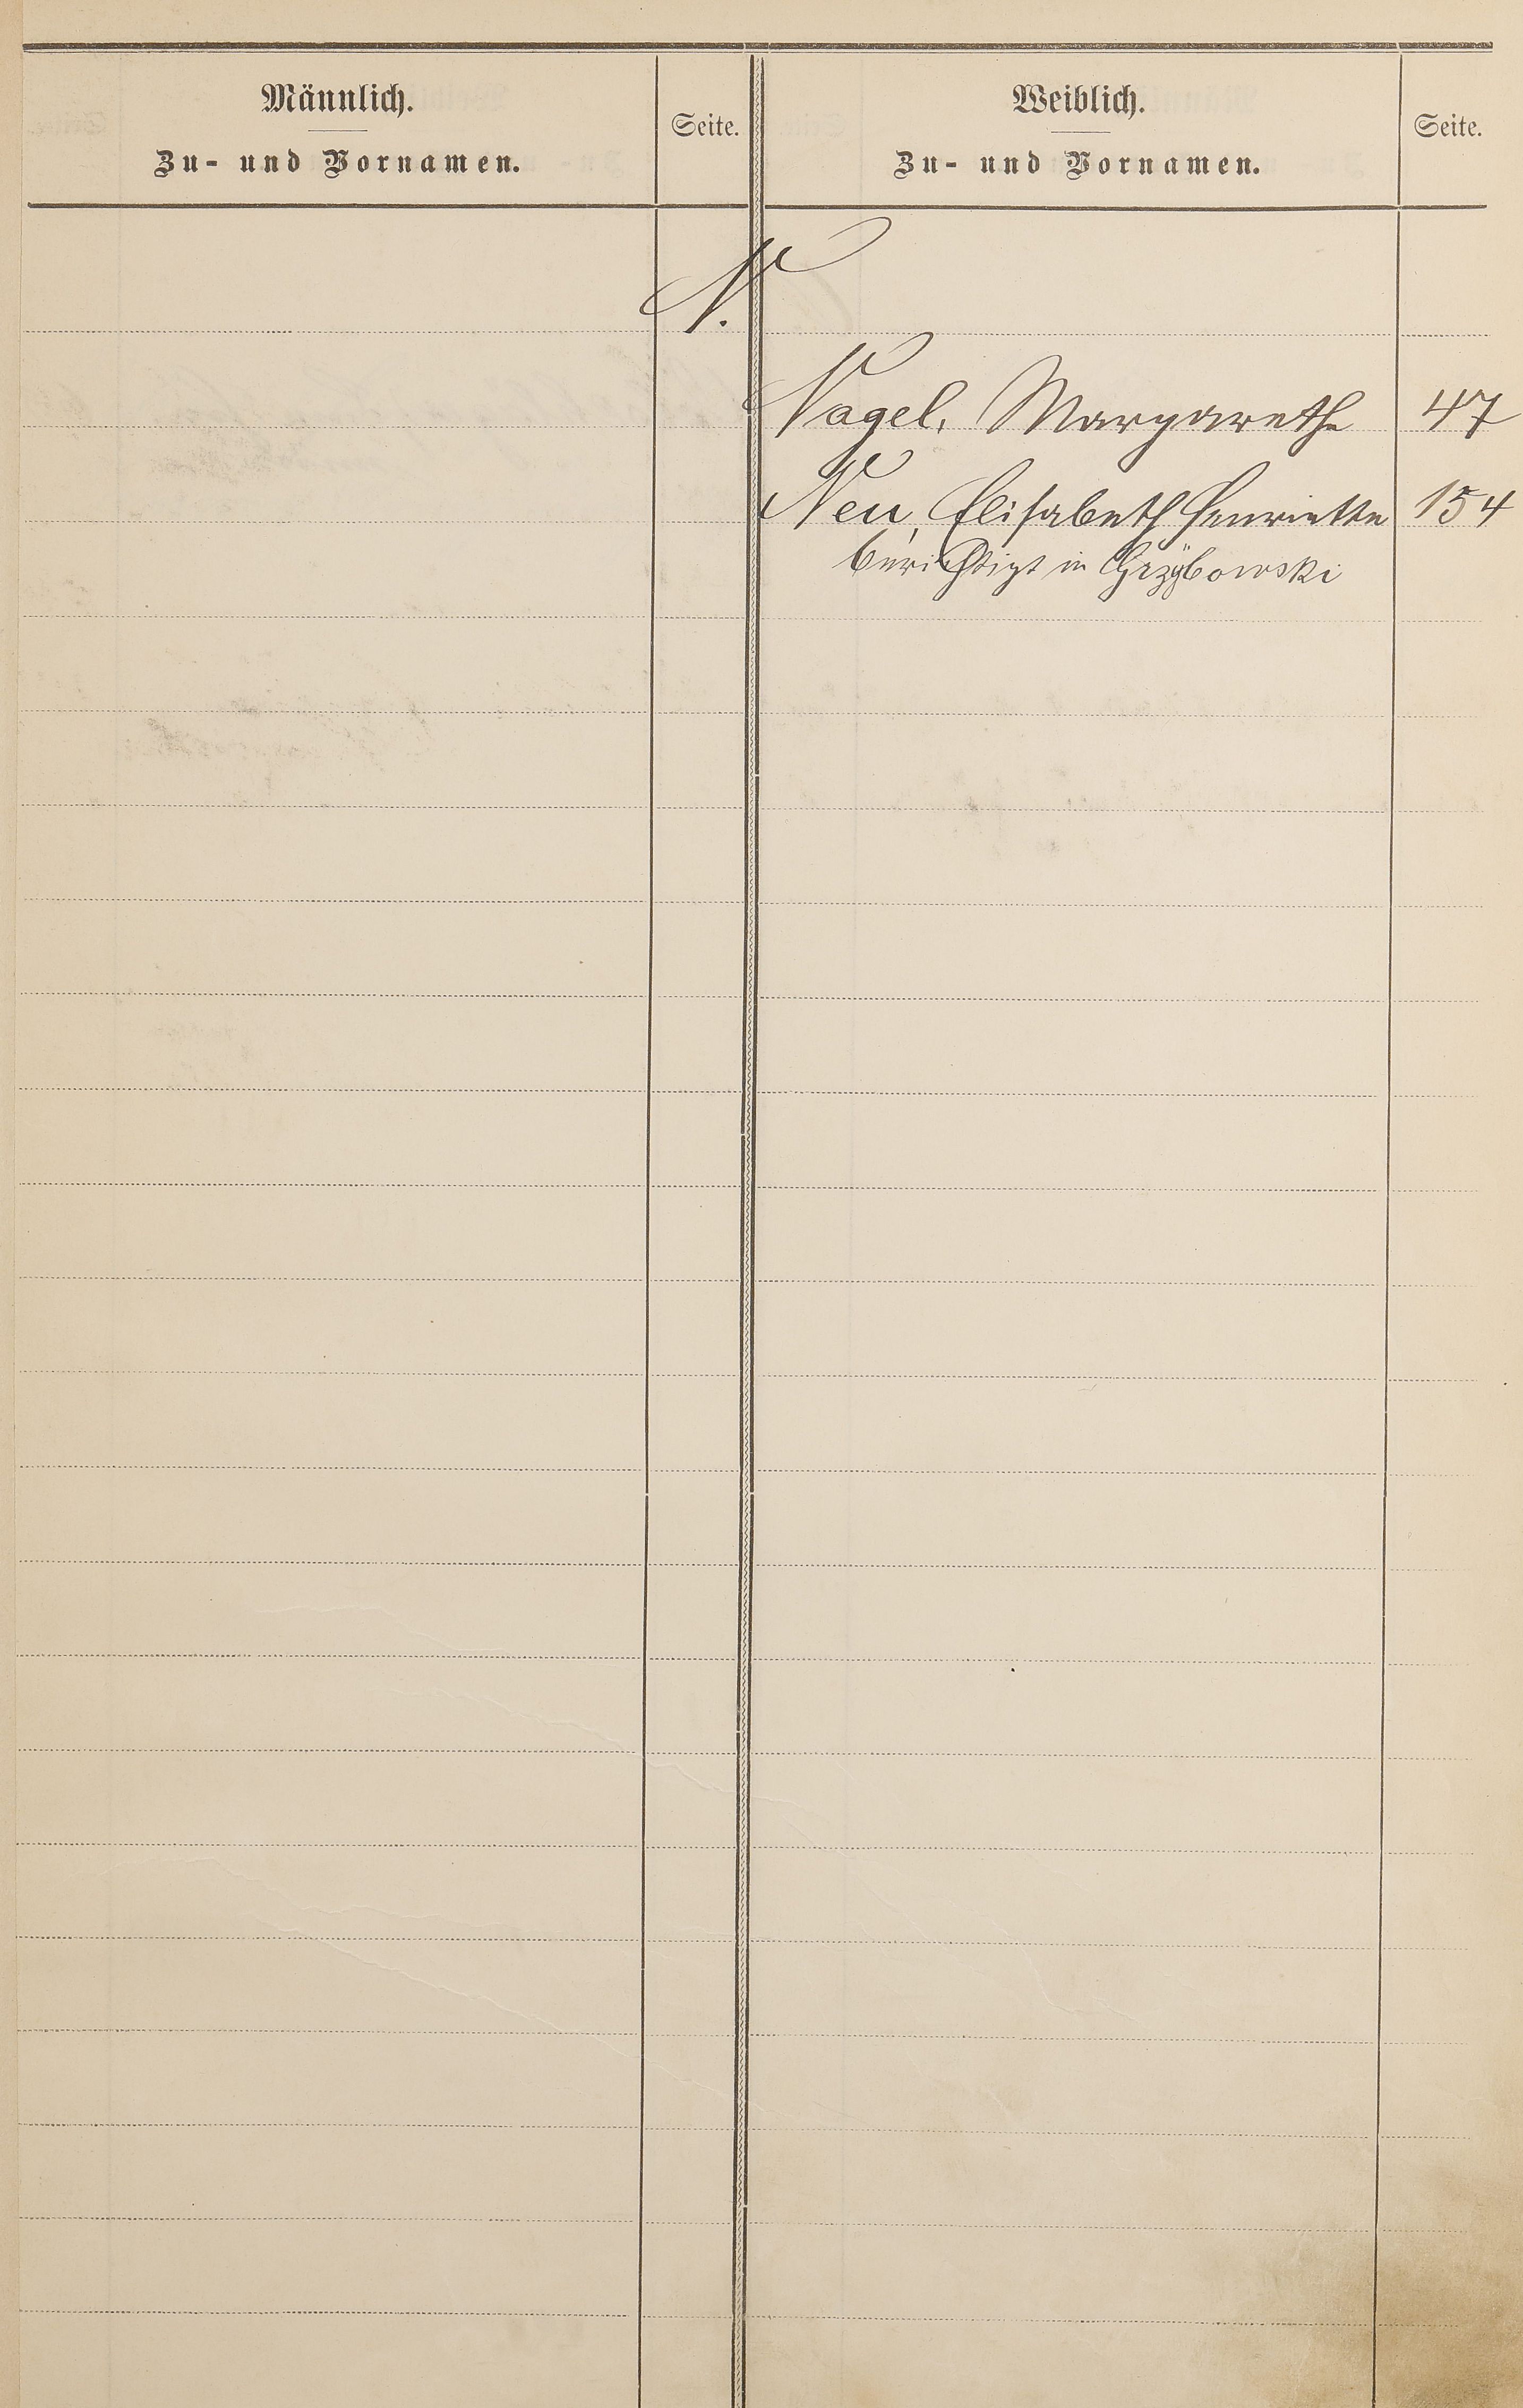 Männlich.
Zu- und Vornamen.
Seite.
Weiblich.
Zu- und Vornamen.
Seite.
N.
Nagel, Margarethe 47
Neu, Elisabeth Henriette 154
berichtigt in Grzÿbowski